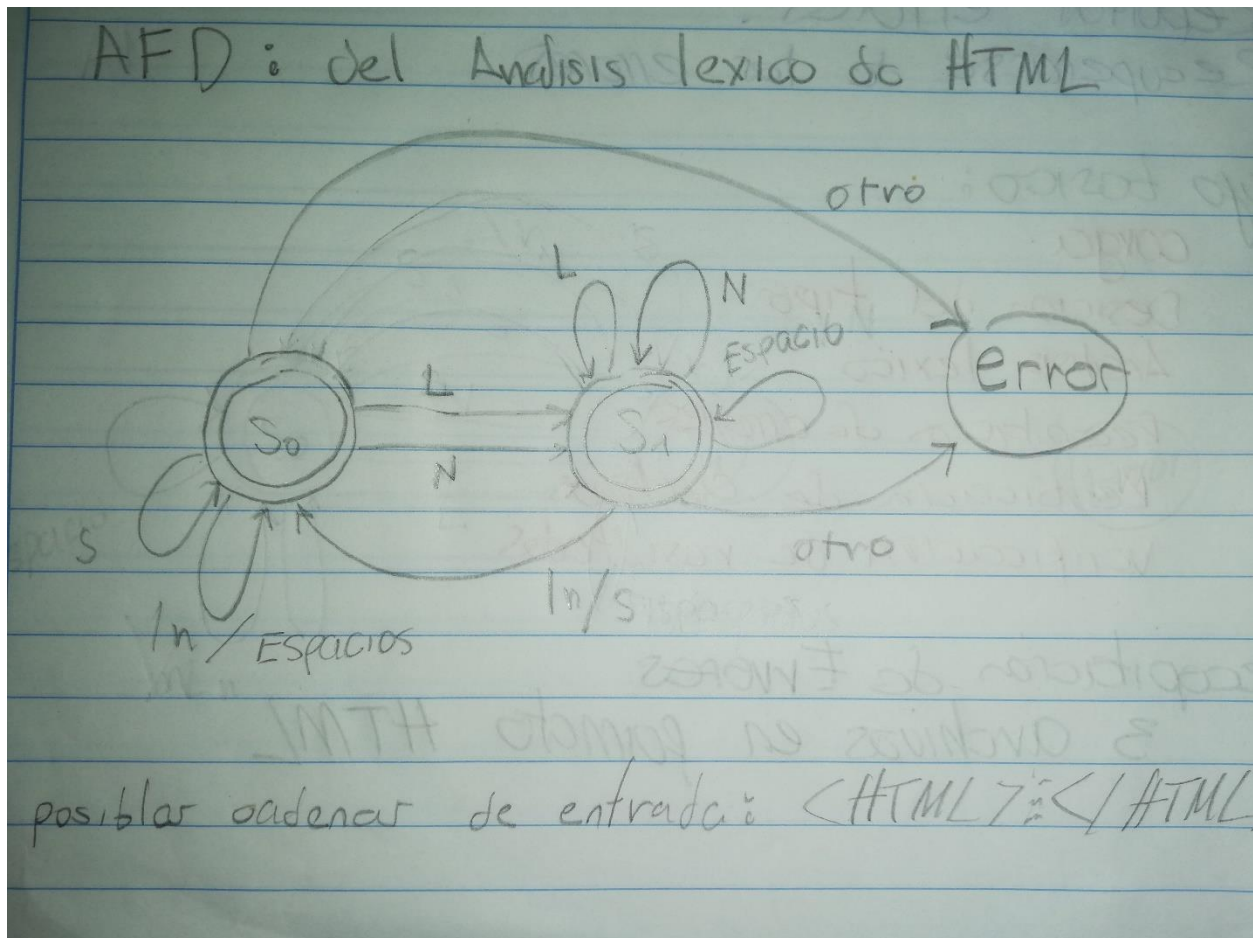 AFD: del Analisis lexico do HTML
otro
L
N
Espacio
error
L
S0
S1
N
S
otro
\n/S
\n/Espacios
posiblar cadenar de entrada: <HTML>:</HTML